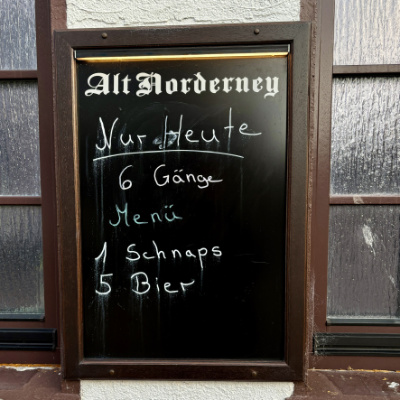 Alt Norderney
Nur Heute
6 Gänge
Menü
1 Schnaps
5 Bier